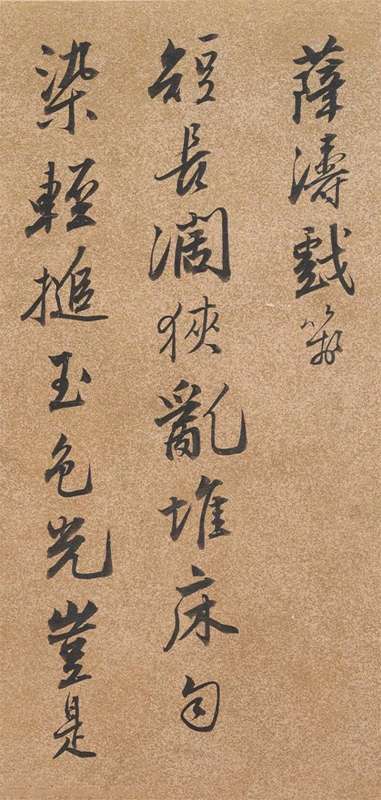 薛濤戲
短長濶狹亂堆床匀
染輕搥玉色光豈是